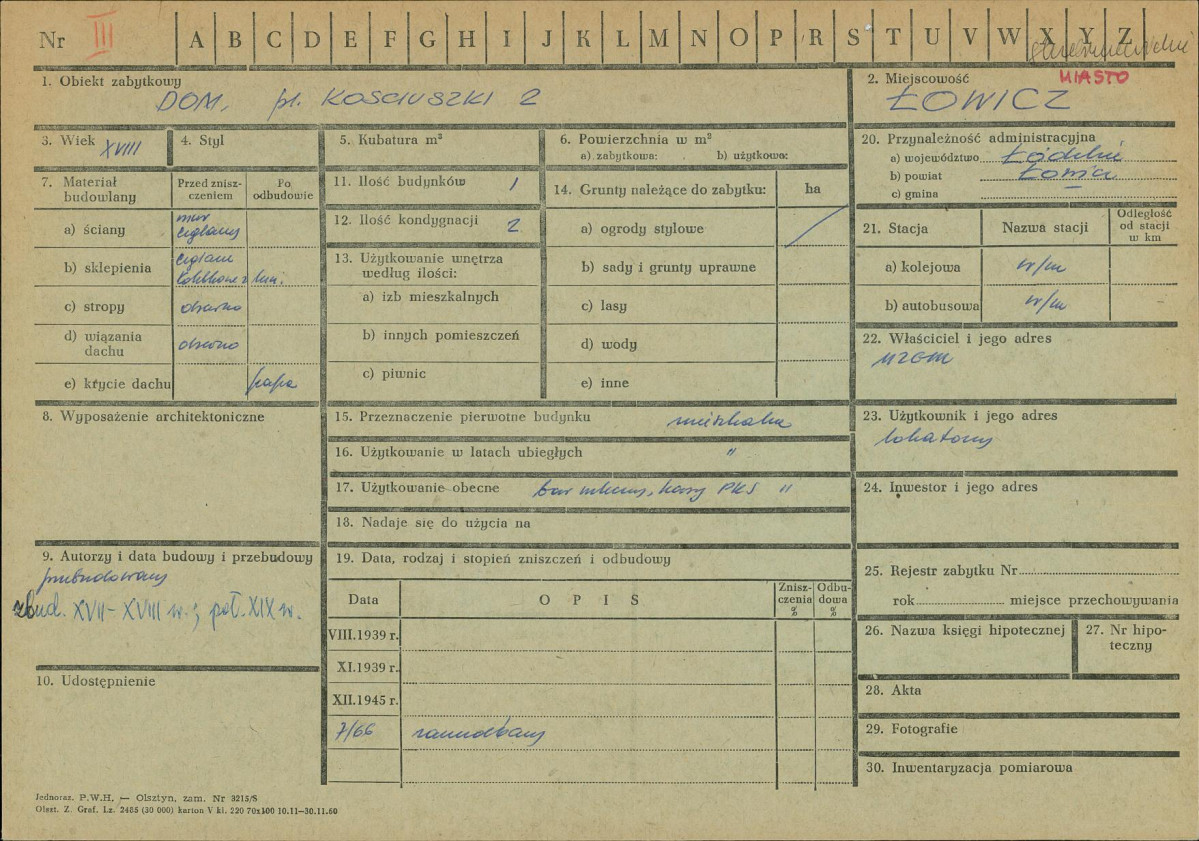 Nr III A B C D E F G H I J K L M N O P R S T U V W X Y Z
1. Obiekt zabytkowy
DOM, pl. KOSCIUSZKI 2
2. Miejscowość MIASTO
ŁOWICZ
3. Wiek XVIII
4. Styl
5. Kubatura m³
6. Powierzchnia w m²
a) zabytkowa: b) użytkowa:
7. Materiał budowlany
Przed zniszczeniem
Po odbudowie
a) ściany mur ceglany
b) sklepienia
c) stropy
d) wiązania dachu
e) krycie dachu papa
8. Wyposażenie architektoniczne
9. Autorzy i data budowy i przebudowy
przebudowany
zbud. XVII-XVIII w.; poł. XIX w.
10. Udostępnienie
11. Ilość budynków 1
12. Ilość kondygnacji 2
13. Użytkowanie wnętrza
według ilości:
a) izb mieszkalnych
b) innych pomieszczeń
c) piwnic
14. Grunty należące do zabytku: ha
a) ogrody stylowe /
b) sady i grunty uprawne
c) lasy
d) wody
e) inne
15. Przeznaczenie pierwotne budynku mieszkalne
16. Użytkowanie w latach ubiegłych "
17. Użytkowanie obecne bar mleczny, kasy PKS "
18. Nadaje się do użycia na
19. Data, rodzaj i stopień zniszczeń i odbudowy
Data
O P I S
Zniszczenia %
Odbudowa %
VIII.1939 r.
XI.1939 r.
XII.1945 r.
7/66 zaniedbany
20. Przynależność administracyjna
a) województwo Łódzkie
b) powiat Łowicz
c) gmina
21. Stacja
Nazwa stacji
Odległość od stacji w km
a) kolejowa w/m
b) autobusowa w/m
22. Właściciel i jego adres
MZBM
23. Użytkownik i jego adres
lokatorzy
24. Inwestor i jego adres
25. Rejestr zabytku Nr
rok miejsce przechowywania
26. Nazwa księgi hipotecznej
27. Nr hipoteczny
28. Akta
29. Fotografie
30. Inwentaryzacja pomiarowa
Jednoraz. P.W.H. — Olsztyn, zam. Nr 3215/S
Olszt. Z. Graf. Lz. 2485 (30 000) karton V kl. 220 70x100 10.11—30.11.60